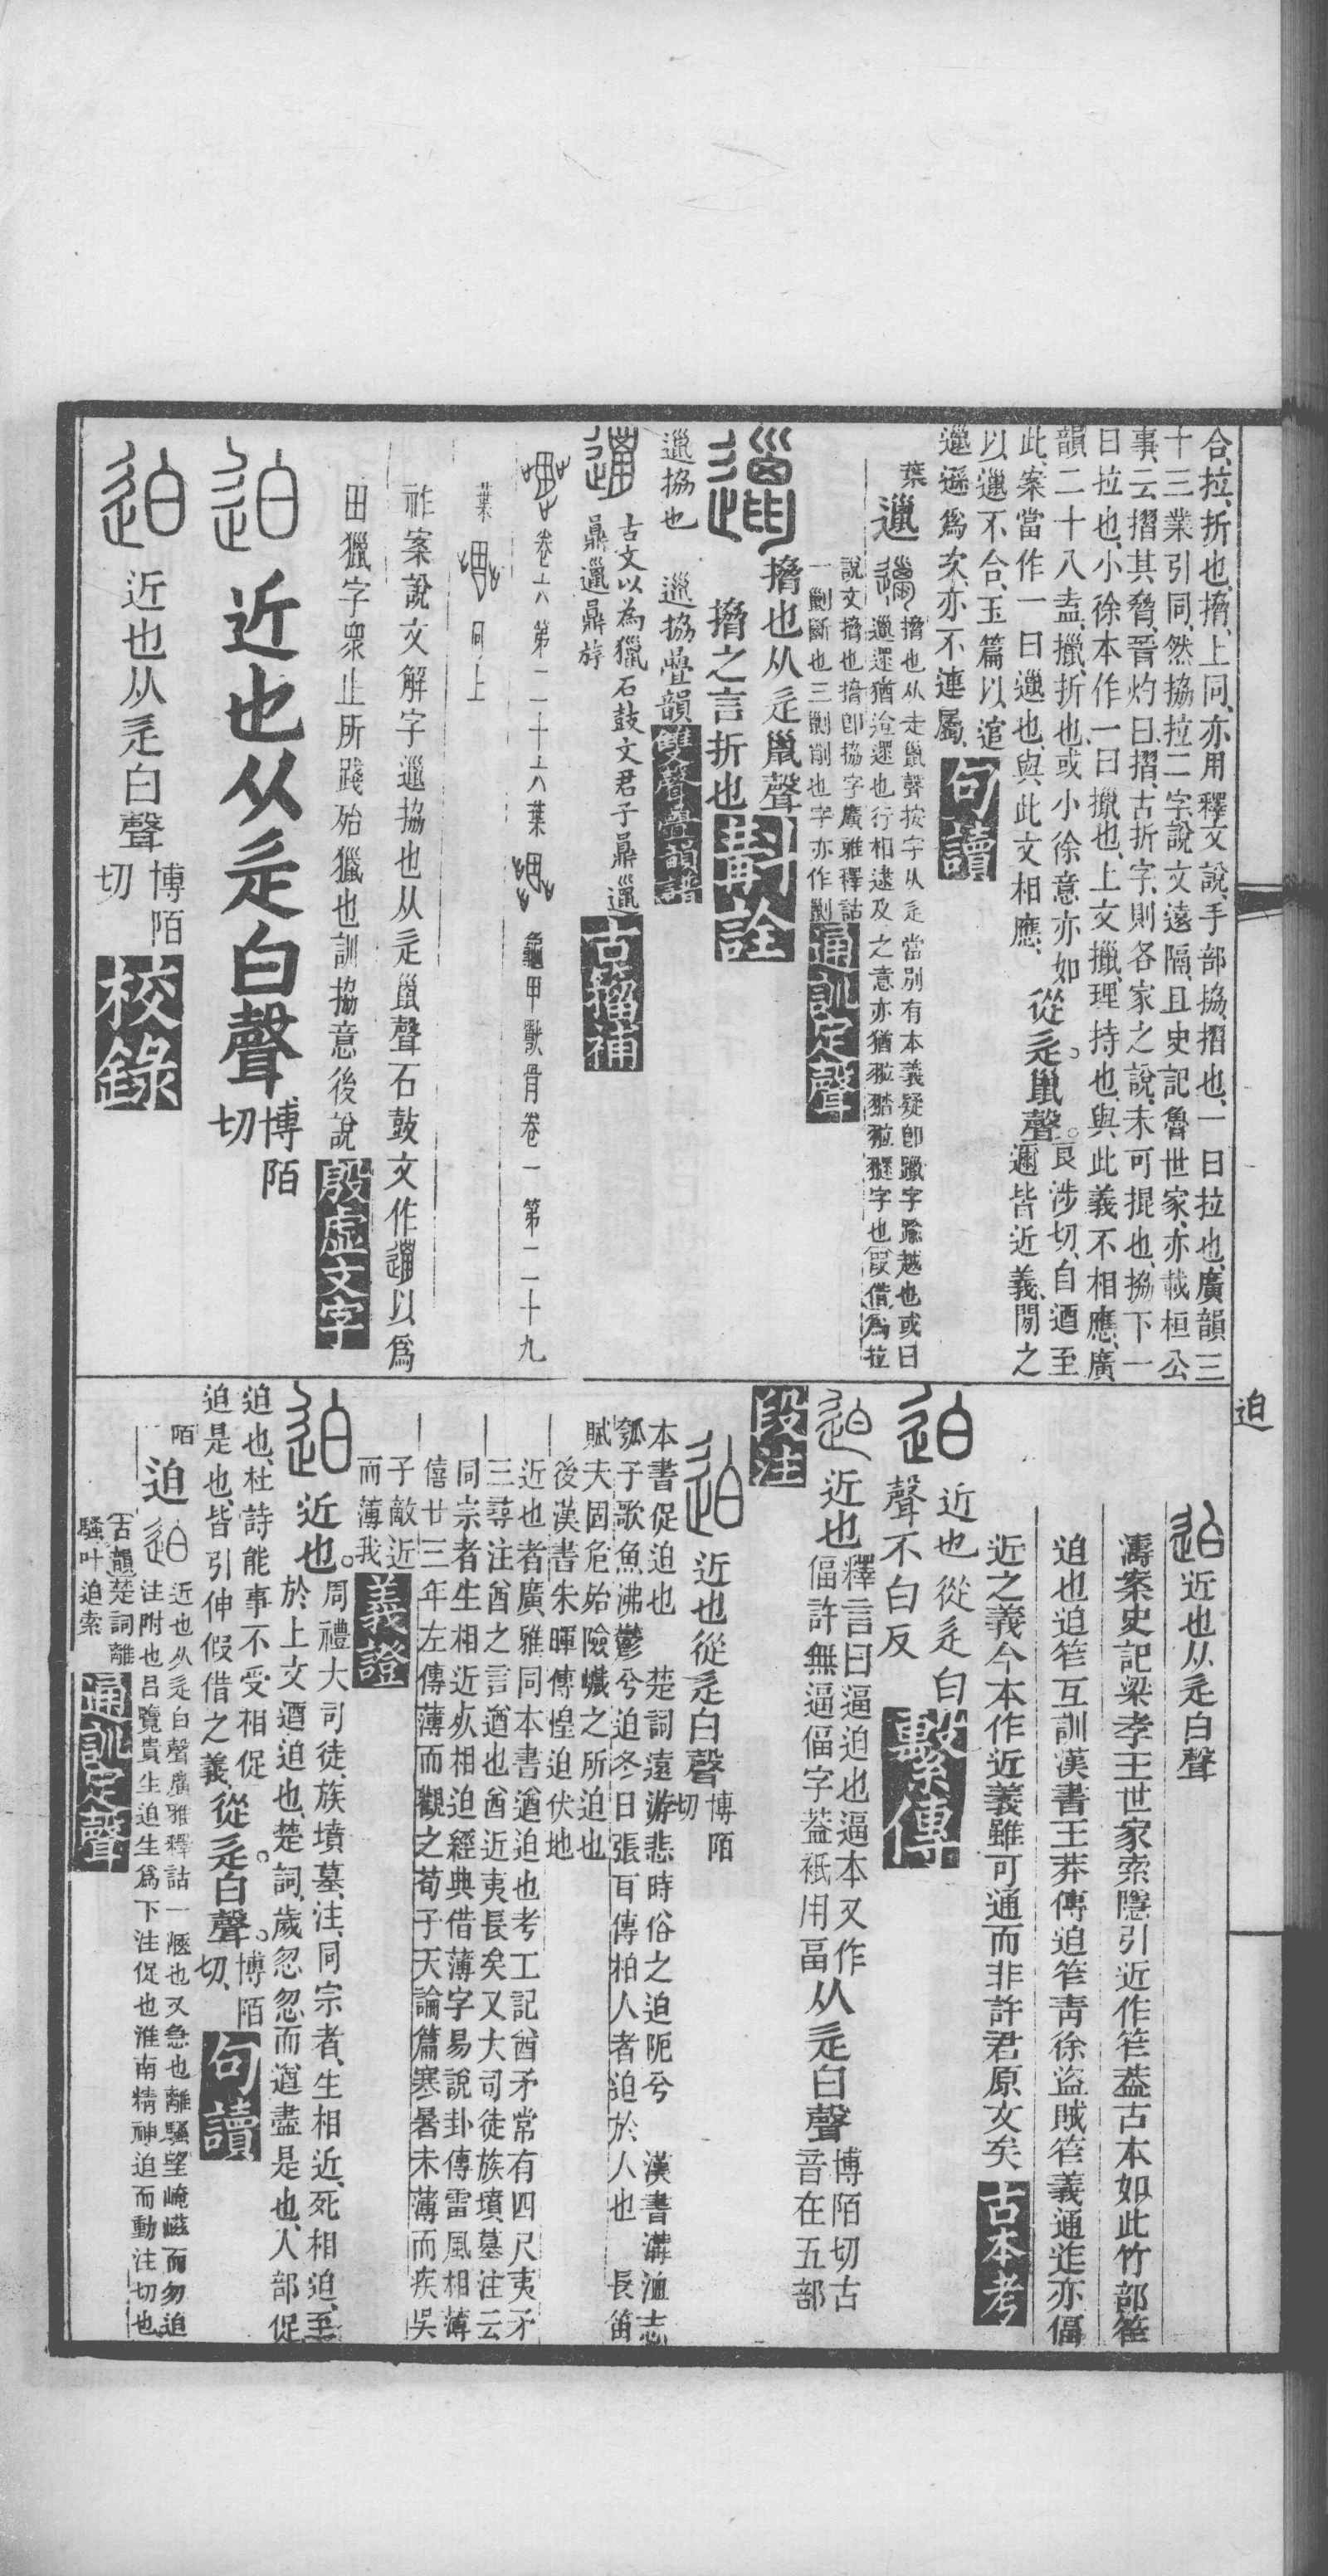 合、拉、折也、摺、上同、亦用釋文說、手部拹、摺也、一曰拉也、廣韻三
十三業引同、然拹拉二字、說文遠隔、且史記魯世家、亦載桓公
事、云摺其脅、晉灼曰、摺、古折字、則各家之說、未可提也、拹下一
曰拉也、小徐本作一曰擸也、上文擸、理持也、與此義不相應、廣
韻二十八盍、擸、折也、或小徐意亦如
此、案當作一曰邋也、與此文相應、
從辵巤聲。良涉切、自迺至
邇皆近義、閒之
以邋不合、玉篇以追
邋遜爲次、亦不連屬、
句讀
葉
邋
搚也从辵巤聲按字从辵當別有本義疑卽躐字踰越也或曰
邋遝猶迨遝也行相逮及之意亦猶
字也叚借爲拉
說文搚也搚卽拹字廣雅釋詁
一劘斷也三劘削也字亦作劘
通訓定聲
搚也从辵巤聲
搚之言折也
斠詮
邋拹也 邋拹疊韻
雙聲疊韻譜
古文以為獵石鼓文君子鼎邋
鼎邋鼎斿
古籀補
卷六第二十六葉
龜甲獸骨卷一第二十九
葉
同上
祚案說文解字邋拹也从辵巤聲石鼓文作邋以爲
田獵字衆止所踐殆獵也訓拹意後說
殷虛文字
近也从辵白聲
博陌
切
近也从辵白聲
博陌
切
校錄
迫
近也从辵白聲
濤案史記梁孝王世家索隱引近作筰葢古本如此竹部筰
迫也迫筰互訓漢書王莽傳迫筰靑徐盜賊筰義通迮亦偪
近之義今本作近義雖可通而非許君原文矣
古本考
近也從辵白
聲不白反
繫傳
近也
釋言曰逼迫也逼本又作
偪許無逼偪字葢祇用畐
从辵白聲
博陌切古
音在五部
段注
近也從辵白聲
博陌
切
本書促迫也 楚詞遠游悲時俗之迫阨兮 漢書溝洫志
瓠子歌魚沸鬱兮迫冬日張耳傳柏人者迫於人也 長笛
賦夫固危殆險巇之所迫也
後漢書朱暉傳惶迫伏地
近也者廣雅同本書遒迫也考工記酋矛常有四尺夷矛
三尋注酋之言遒也酋近夷長矣又大司徒族墳墓注云
同宗者生相近死相迫經典借薄字易說卦傳雷風相薄
僖廿三年左傳薄而觀之荀子天論篇寒暑未薄而疾吳
子敵近
而薄我
義證
近也。
周禮大司徒、族墳墓、注、同宗者、生相近、死相迫、
於上文迺迫也、楚詞、歲忽忽而遒盡是也、人部促
迫也、杜詩能事不受相促
迫是也、皆引伸假借之義、
從辵白聲。
博陌
切、
句讀
陌
迫
近也从辵白聲廣雅釋詁一愜也又急也離騷望崦嵫而勿迫
注附也呂覽貴生迫生爲下注促也淮南精神迫而動注切也
古韻楚詞離
騷叶迫索
通訓定聲